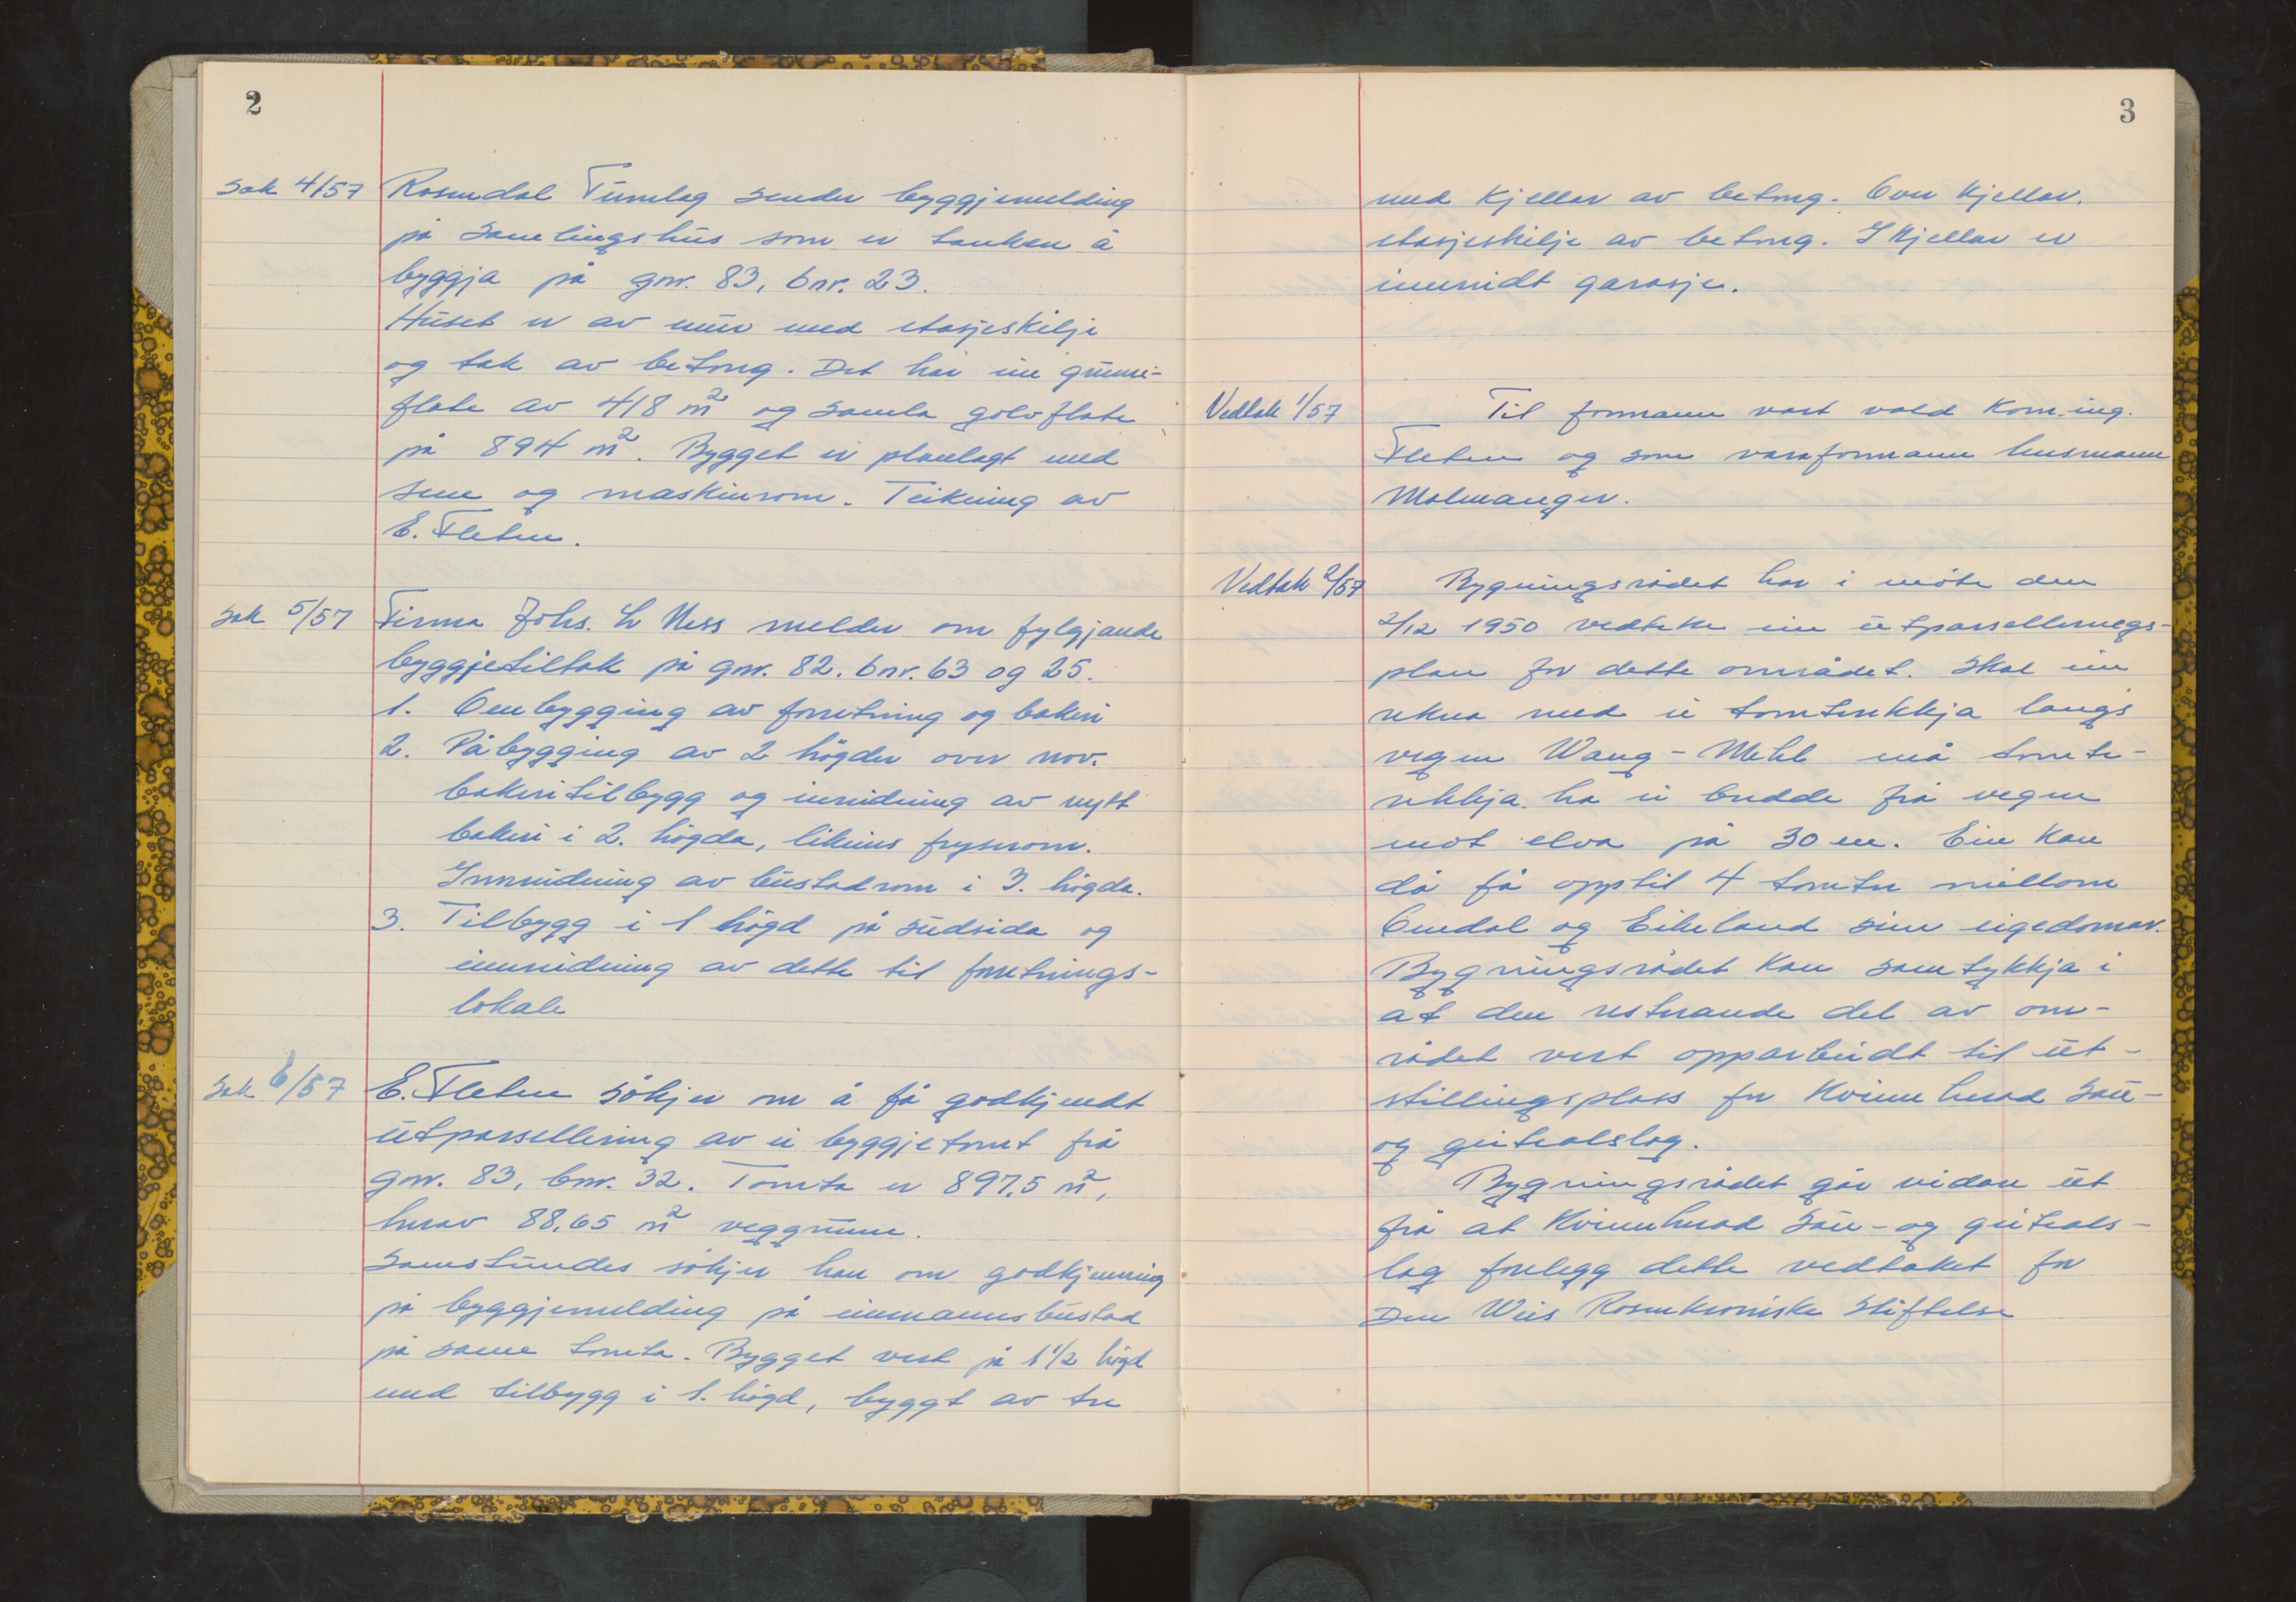 2
Sak 4/57 Rosendal Turnlag sender byggjemelding
på Samlingshus som er tenken å
byggja på gnr. 83, bnr. 23.
Huset er av mur med etasjeskilje
og tak av betong. Det har ein grunn-
flate av 418 m² og samla golvflate
på 894 m². Bygget er planlagt med
sene og maskinrom. Teikning av
E. Fleten.
Sak 5/57 Firma Johs. L Ness melder om fylgjande
byggjetiltak på gnr. 82. bnr. 63 og 25.
1. Ombygging av forretning og bakeri
2. Påbygging av 2 högder over nov.
bakeritilbygg og innreidning av nytt
bakeri i 2. högda, likeins fryserom.
Innreidning av bustadrom i 3. högda.
3. Tilbygg i 1 högd på sudsida og
innreidning av dette til forretnings-
lokale
Sak 6/57 E. Fleten sökjer om å få godkjendt
utparsellering av ei byggjetomt frå
gnr. 83, bnr. 32. Tomta er 897,5 m²,
herav 88,65 m² veggrunn.
Samstundes sökjer han om godkjenning
på byggjemelding på einmannsbustad
på same tomta. Bygget vert på 1 1/2 högd
med tilbygg i 1. högd, byggt av tre
3
med kjellar av betong. Over kjellar.
etasjeskilje av betong. I kjellar er
innreidt garasje.
Vedtak 1/57 Til formann vart vald Kom.ing.
Fleten og som varaformann husmann
Malmanger.
Vedtak 2/57 Bygningsrådet har i möte den
2/12 1950 vedteke ein utparsellerings-
plan for dette området. Skal ein
rekna med ei tomterekkja langs
vegen Wang - Mehl må tomte-
rekkja ha ei bredde frå vegen
mot elva på 30 m. Ein kan
då få opptil 4 tomter millom
Omdal og Eikeland sine eigedomar.
Bygningsrådet kan samtykkja i
at den resterande del av om-
rådet vert opparbeidt til ut-
stillingsplass for Kvinnherad Sau-
og geitealslag.
Bygningsrådet går vidare ut
frå at Kvinnherad Sau- og geiteals-
lag forelegg dette vedtaket for
Den Weis Rosenkroniske Stiftelse